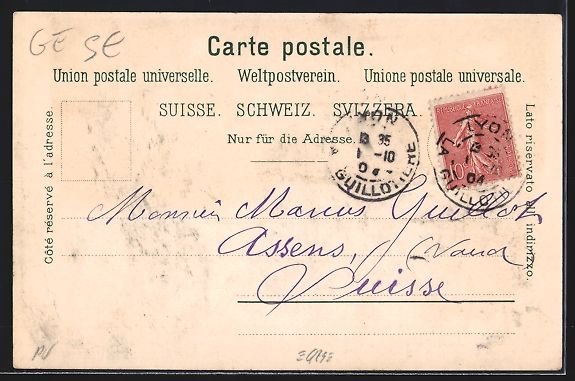 GE SE
Carte postale.
Union postale universelle. Weltpostverein. Unione postale universale.
SUISSE. SCHWEIZ. SVIZZERA.
Nur für die Adresse.
Côté réservé à l'adresse.
Lato riservato all' indirizzo.
LYON
13 35
1 -10
04
GUILLOTIERE
REPUBLIQUE FRANÇAISE
10
LYON
04
LA GUILLOT
Monsieur Marcus Guilloz
Assens, Vaud
Suisse